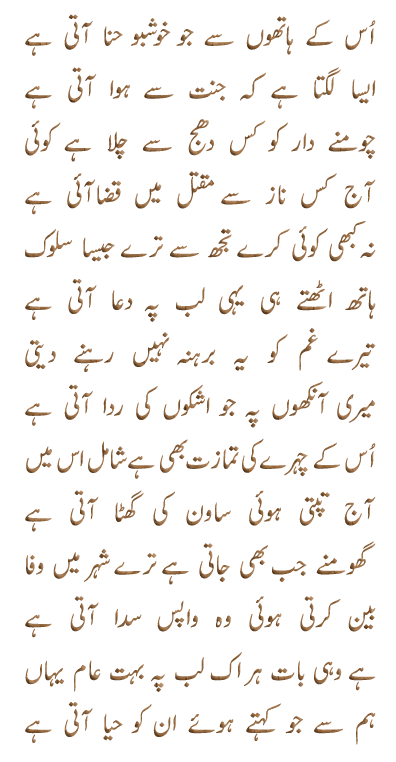 اُس کے ہاتھوں سے جو خوشبو حنا آتی ہے
ایسا لگتا ہے کہ جنت سے ہوا آتی ہے
چومنے دار کو کس دھج سے چلا ہے کوئی
آج کس ناز سے مقتل میں قضا آئی ہے
نہ کبھی کوئی کرے تجھ سے ترے جیسا سلوک
ہاتھ اٹھتے ہی یہی لب پہ دعا آتی ہے
تیرے غم کو یہ برہنہ نہیں رہنے دیتی
میری آنکھوں پہ جو اشکوں کی ردا آتی ہے
اُس کے چہرے کی تمازت بھی ہے شامل اس میں
آج تپتی ہوئی ساون کی گھٹا آتی ہے
گھومنے جب بھی جاتی ہے ترے شہر میں وفا
بین کرتی ہوئی وہ واپس سدا آتی ہے
ہے وہی بات ہر اک لب پہ بہت عام یہاں
ہم سے جو کہتے ہوئے ان کو حیا آتی ہے